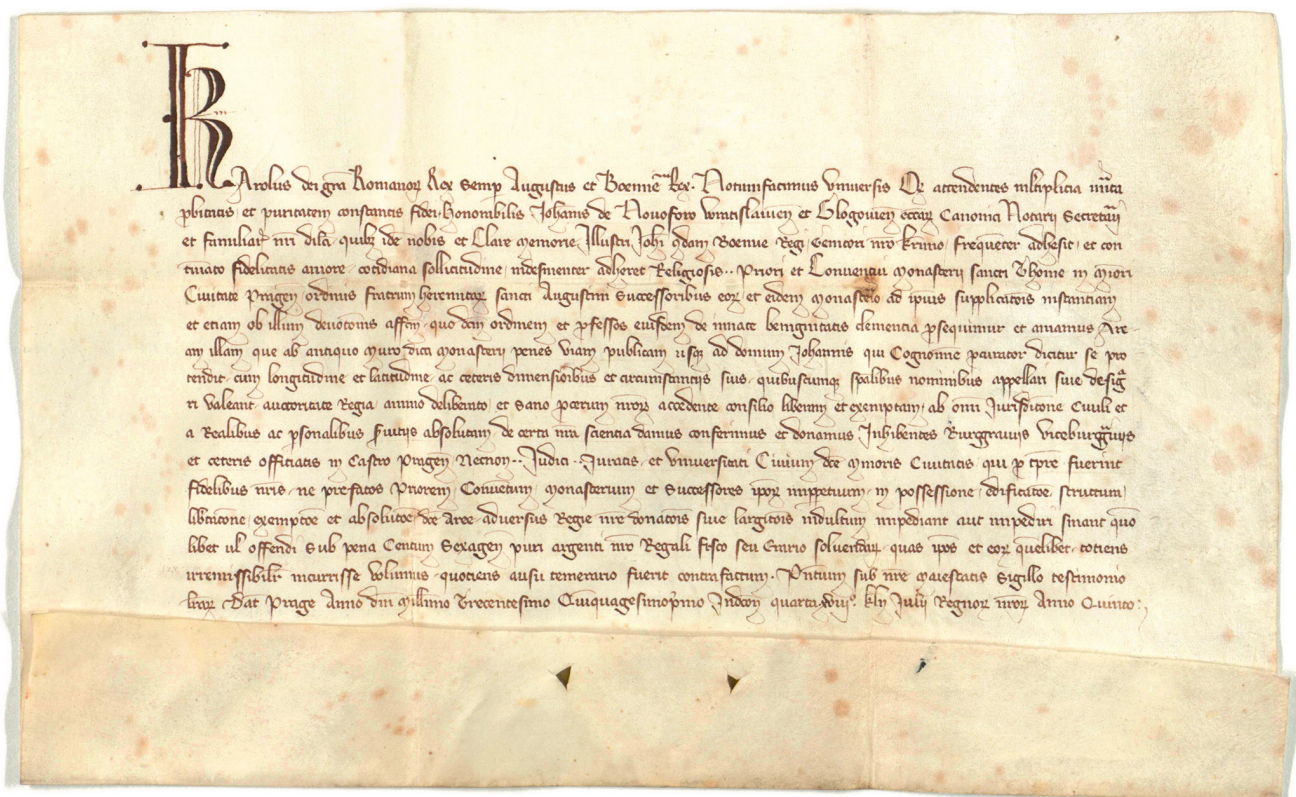 KArolus dei gra Romanoꝝ Rex Semp Augustus et Boemie Rex. Notum facimus Universis Qz attendentes multiplicia merita
pbitatis et puritatem constantis fidei honorabilis Johannis de Novoforo Wratislavien et Glogovien eccaꝝ Canonici Notarii Secretarii
et familiar nri dilci, quibz idem nobis et Clare memorie Illustri Johi qdam Boemie Regi Genitori nro krimo, frequenter adhesit, et con
tinuato fidelitatis amore, cotidiana sollicitudine, indesinenter adheret Religiosis .. Priori et Conventui Monasterii sancti Thome in Miori
Civitate Pragen, ordinis fratrum heremitaꝝ sancti Augustini Successoribus eoꝝ et eidem Monasterio ad ipius supplicatois instantiam
et etiam ob illum devotionis affcm, quo dcm ordinem et pfessos eiusdem de innate benignitatis clementia psequimur et amamus Are-
am illam que ab antiquo Muro dicti Monasterii penes viam publicam usqz ad domum Johannis qui Cognomine pavrator dicitur se pro
tendit, cum longitudine et latitudine, ac ceteris dimensioibus et circumstanciis suis, quibuscumqz spalibus nominibus appellari sive desigᵃ
ri valeant, auctoritate Regia, animo deliberato, et sano pcerum nroꝝ accedente consilio liberam et exemptam, ab omi Jurisdicone Civili et
a Realibus ac psonalibus sviciis absolutam, de certa nra sciencia damus conferimus et donamus Inhibentes Burggraviis viceburggraviis
et ceteris officiatis in Castro Pragen Necnon .. Judici .. Juratis, et Universitati Civium dce Minoris Civitatis, qui p tpre fuerint
fidelibus nris, ne prefatos Priorem, Conventum, Monasterium et Successores ipoꝝ imppetuum, in possessione, edificatoe, structura,
libtacione, exempcoe et absolucoe, dce Aree, adversus Regie nre donatois sive largitois indultum impediant aut impediri sinant quo
libet ul offendi Sub pena Centum Sexagen puri argenti nro Regali fisco seu Erario solvendaꝝ, quas ipos et eoꝝ quelibet, totiens
irremissibilr incurrisse volumus, quotiens ausu temerario fuerit contrafactum. Pntium sub nre Maiestatis Sigillo testimonio
lraꝝ Dat Prage Anno dni Millimo Trecentesimo Quinquagesimopimo Indcon quarta xviiiº kln Julii Regnoꝝ nroꝝ Anno Quinto